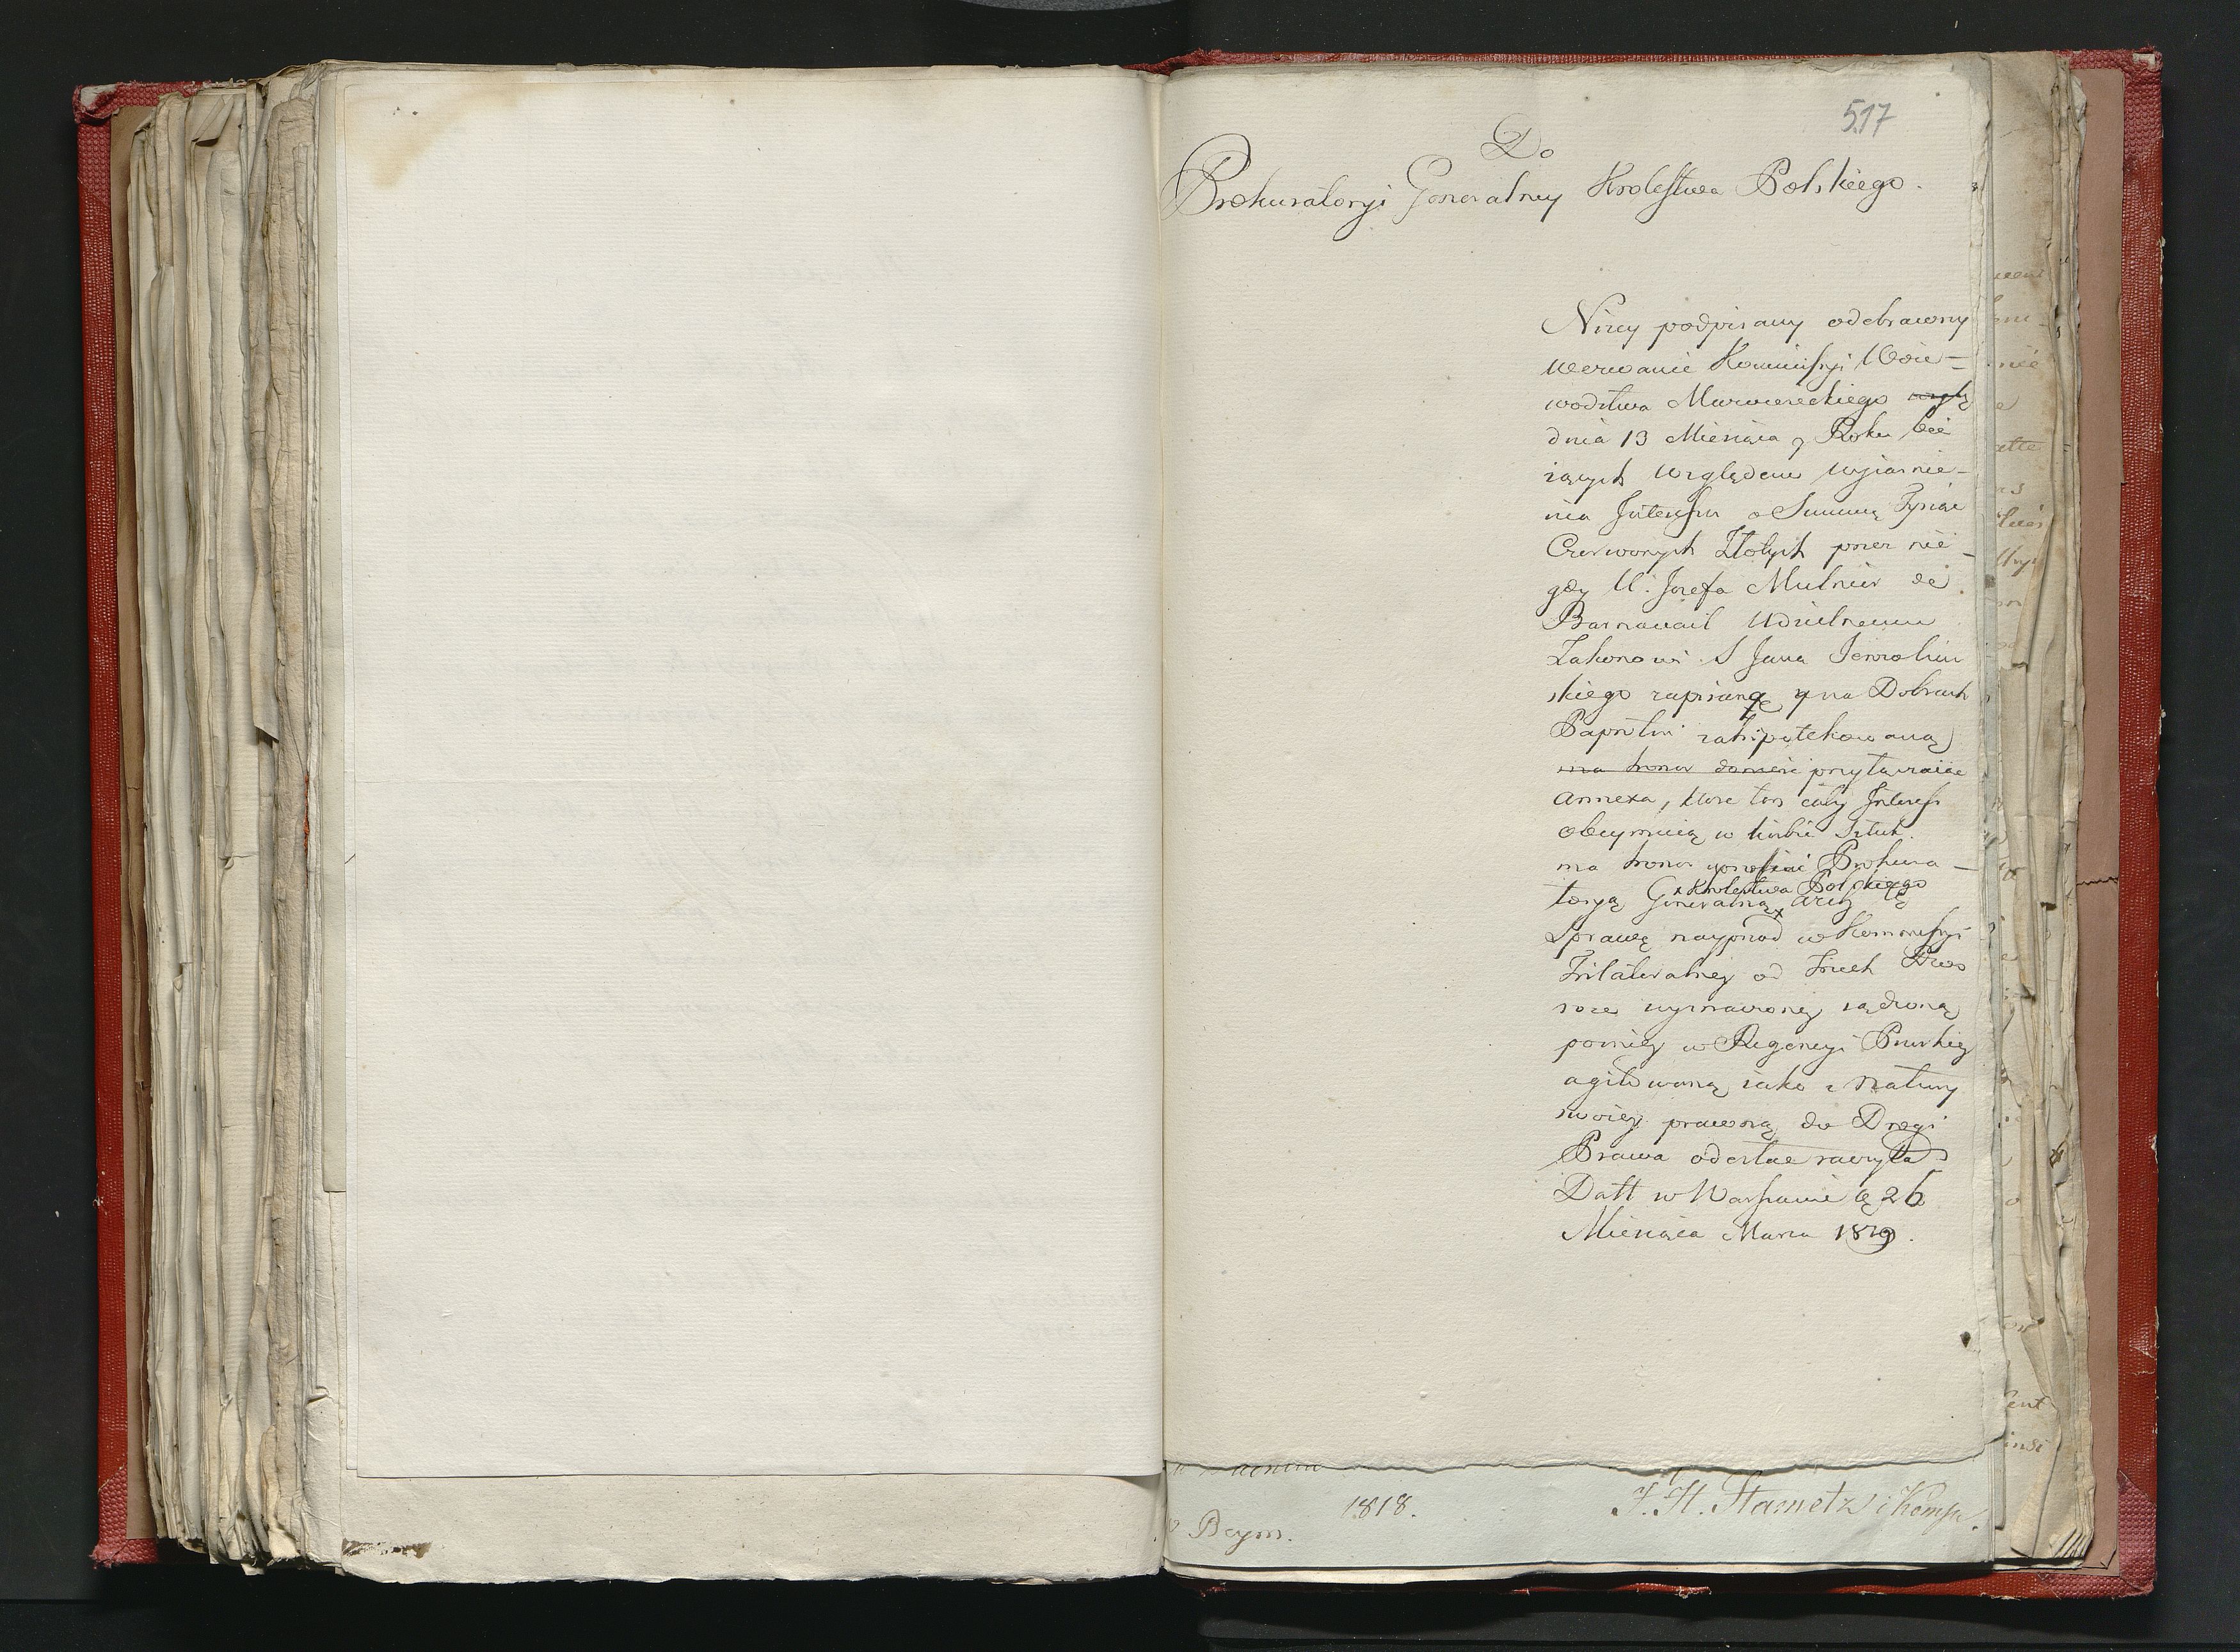 517
Do
Prokuratoryi Generalney Krolestwa Polskiego.
Nizey podpisany odebrawszy
Wezwanie Kommissyi Woie-
wodztwa Mazowieckiego
dnia 13 Miesiąca y Roku bie
iących Względem wyiasnie-
nia Interessu o Summę Tysiąc
Czerwonych Złotych przez nie-
gdy U. Jozefa Mulnier de
Barnavail Udzielnemu
Zakonowi S Jana Jerozolim
skiego zapisaną y na Dobrach
Paprotni zahipotekowaną
ma honor donieść przyłączaiąc
Annexa, ktore ten cały Interess
obeymuią w liczbie Sztuk.
ma honor Prokura-
toryą Generalną x Krolestwa Polskiego aby tę
Sprawę nayprzod w Kommissyi
Trilateralney od Trzech Dwo
row wyznaczoney sądzoną
pozniey w Regencyi Pruskiey
agitowaną iako z Natury
swoiey prawną do Drogi
Prawa odesłać raczyła
Datt w Warszawie d 26
Miesiąca Marca 1819.
1818.
J. H. Stametz i Komp.
Beym.